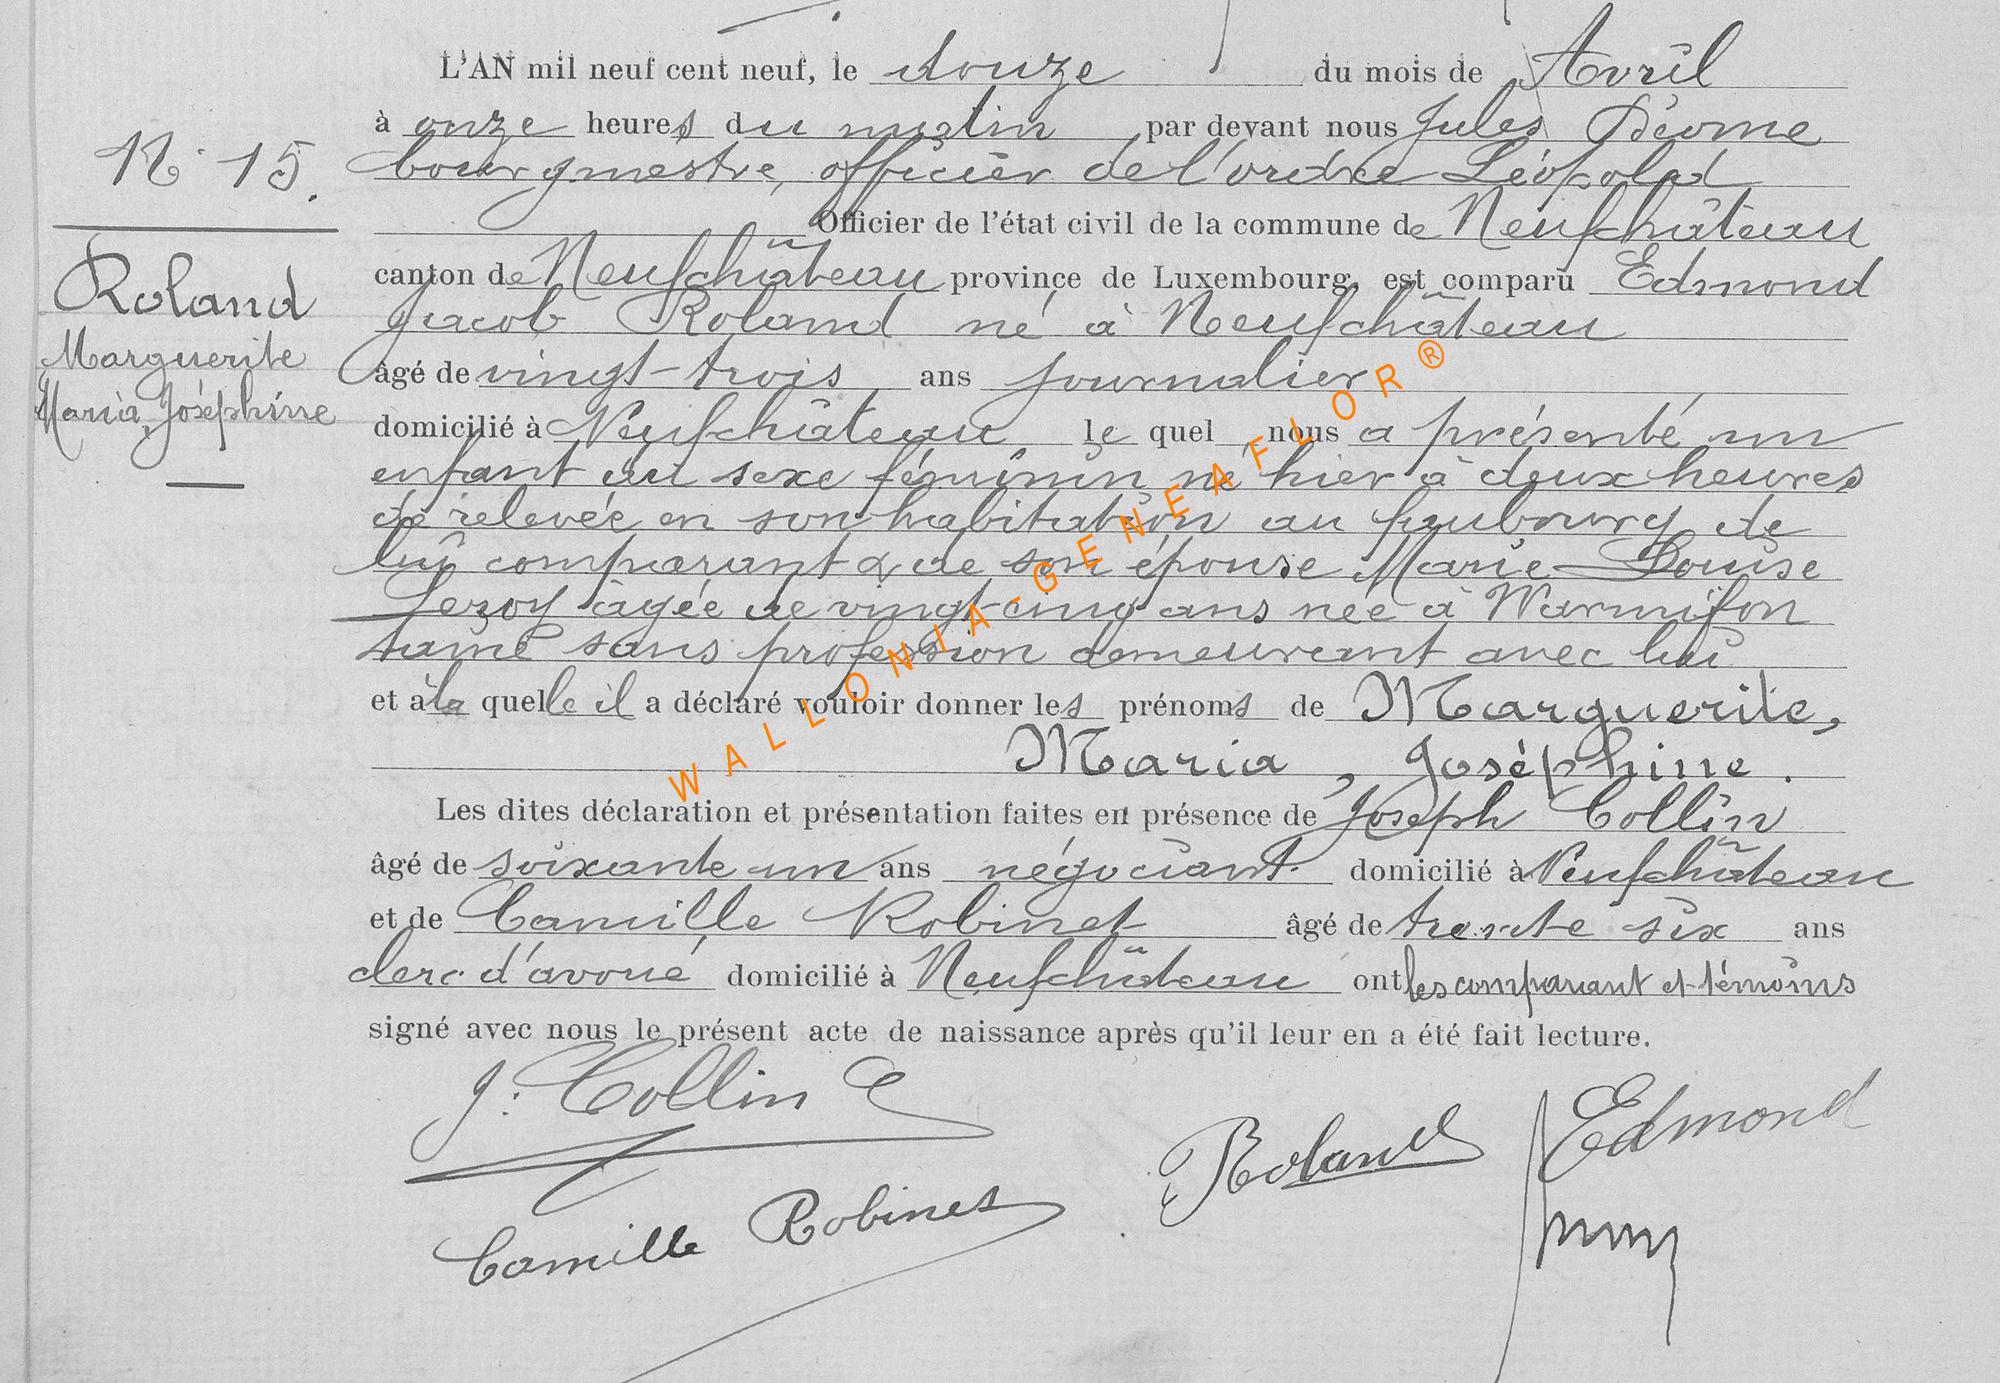 L'AN mil neuf cent neuf, le douze du mois de Avril
à onze heures du matin par devant nous Jules
bourgmestre, officier de l'ordre Léopold
Officier de l'état civil de la commune de Neufchâteau
canton de Neufchâteau province de Luxembourg, est comparu Edmond
Jacob Roland né à Neufchâteau
âgé de vingt-trois ans journalier
domicilié à Neufchâteau le quel nous a présenté un
enfant du sexe féminin né hier à deux heures
de relevée en son habitation au faubourg de
lui comparant & de son épouse Marie Louise
Lezoy âgée de vingt-cinq ans née à Warmifon
taine sans profession demeurant avec lui
et à la quelle il a déclaré vouloir donner les prénoms de Marguerite,
Maria, Joséphine.
Les dites déclaration et présentation faites en présence de Joseph Collin
âgé de soixante un ans négociant domicilié à Neufchâteau
et de Camille Robinet âgé de trente six ans
clerc d'avoué domicilié à Neufchâteau ont les comparant et témoins
signé avec nous le présent acte de naissance après qu'il leur en a été fait lecture.
J. Collin
Roland Edmond
Camille Robinet
N° 15.
Roland
Marguerite
Maria, Joséphine
WALLONIA-GENEAFLOR®